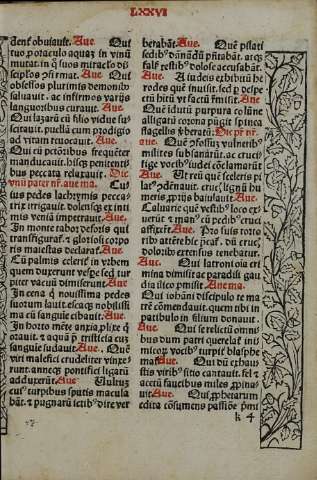 LXXVI
dent obuiauit. Aue. Qui
tuo potaculo aquaz in vinū
mutat. in q̄ suos miraclo di⸗
scipl'os ꝯfirmat. Aue Qui
obsessos plurimis demonib⁹
saluauit. ac infirmos varijs
languoribus curauit. Aue.
Qui lazarū cū filio vidue su⸗
scitauit. puellā cum prodigio
ad vitam reuocauit. Aue.
Qui cū pctōribus frequēter
manducauit. hisq; penitenti
bus peccata relaxauit. Dic
vnū pater nr. aue ma. Cu⸗
ius pedes lachrymis pecca⸗
trix irrigauit. dolensq; ex inti
mis veniā impetrauit. Aue.
In monte tabor defotis qui
transfigurat. z gl'iosi corpo
ris maiestas declarat. Aue.
Cū palmis celerit in vrbem
quem duxerunt vespe sed tur
piter vacuū dimiserunt Aue
In cena q̄ nouissima pedes
suorum lauit. escaq; nobilissi
ma cū sanguie cibauit. Aue.
In horto mēte anxia plixe q̄
orauit. z aqua p tristicia cuz
sanguie sudauit. Aue. Quē
viri malefici crudeliter vinxe⸗
runt. annecq; pontifici ligatū
adduxerūt. Aue Vultuz
cui⁹ turpibus sputis macula
bāt. z pugnaru ictib⁹ dire ver
berabāt. Aue. Quē pilati
sedib⁹ dānādū pntabāt. atq;
fals' testib⁹ dolose accusabāt.
Aue. A iudeis exhibitū he⸗
rodes quē inuisit. sed p despe⸗
ctū hitū vt factū fmisit. Aue
Quē idutū purpura colūne
alligatū corona pugit princa
flagellis xberatū. Dic pr nr.
aue. Quē ꝯfossuz vulnerib⁹
milites subsanārūt. ac crucifi
tige vocib⁹ iudei coclamarūt
Aue. Ut reū quē sceleris pi
lat⁹ ꝯdēnauit. cruc lignū hu
meris xprijs baiulauit Aue.
Caluarie quē vestib⁹ loco ex⸗
uerūt z man⁹ cū pedib⁹ cruci
affixerūt. Aue. Pro suis torto
rib attēte bñ p̄caf. dū cruc
dolorib⁹ extensus tenebatur.
Aue. Qui latroni oīa cri
mina dimisit ac paradisi gau
dia ilico pmisit. Aue ma.
Qui iohāni discipulo te ma
trē cōmendauit. quem nibi in
patibulo in filium donauit.
Aue. Qui se relictū omni⸗
bus dum patri querelat̄ ini
micor voctib⁹ turpif blasphe
mat. Aue. Qui dū exhau⸗
stis virib⁹ sitio cantauit. fel z
acetū faucibus miles xpina⸗
uit Aue. Qui xphetarum
edita cōsumens passiōe p̄mi
k 4